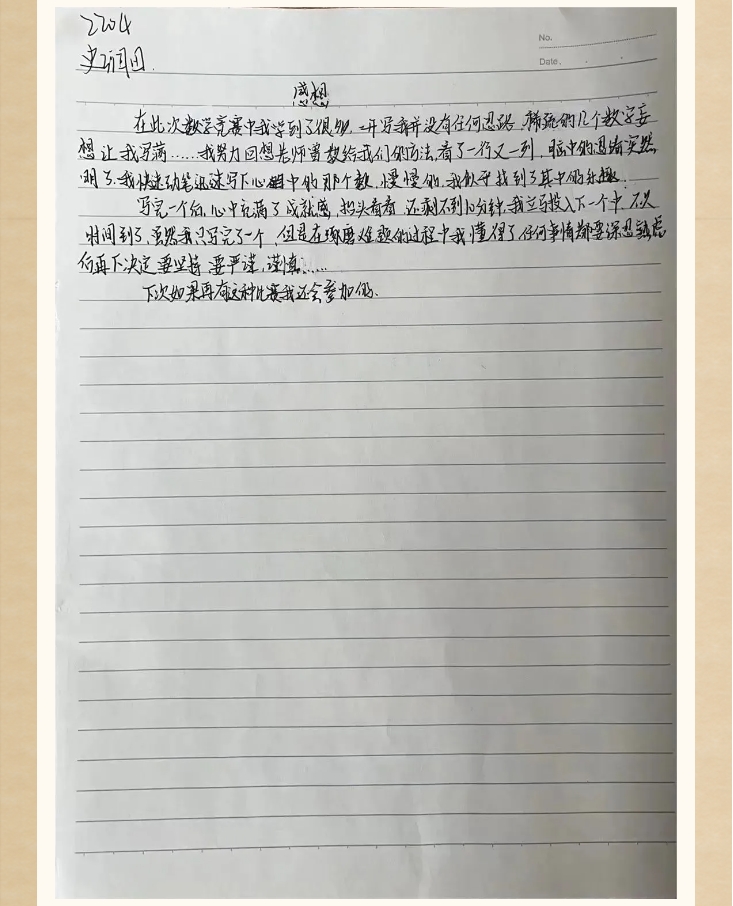 2204
史
No.
Date.
感想
在此次数学竞赛中我学到了很多,一开写我并没有任何思路,稀疏的几个数字妄
想让我写满……我努力回想老师曾教给我们的方法,看了一行又一列,脑中的思绪突然
明了.我快速动笔迅速写下心中的那个数,慢慢的,我似乎找到了其中的乐趣.
写完一个后,心中充满了成就感,抬头看看,还剩不到10分钟,我立马投入下一个中,不久
时间到了,虽然我只写完了一个,但是在琢磨难题的过程中我懂得了任何事情都要深思熟虑
后再下决定,要坚持,要严谨,谨慎……
下次如果再有这种比赛我还会参加的.